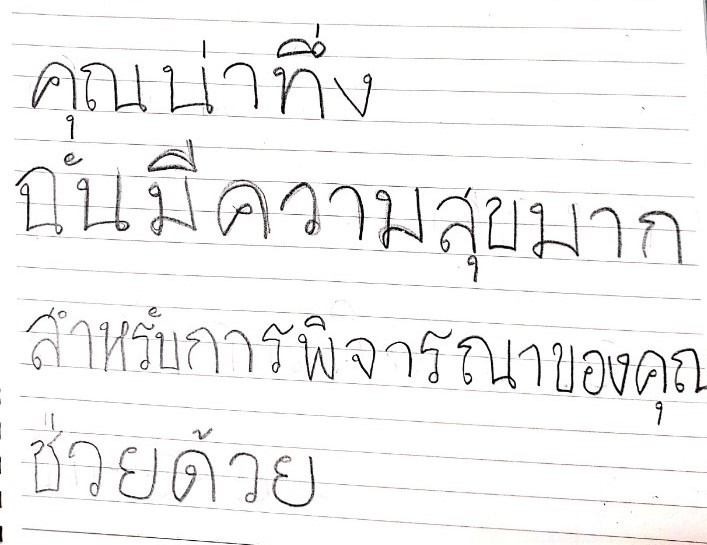 คุณน่าทึ่ง
ฉันมีความสุขมาก
สำหรับการพิจารณาของคุณ
ช่วยด้วย